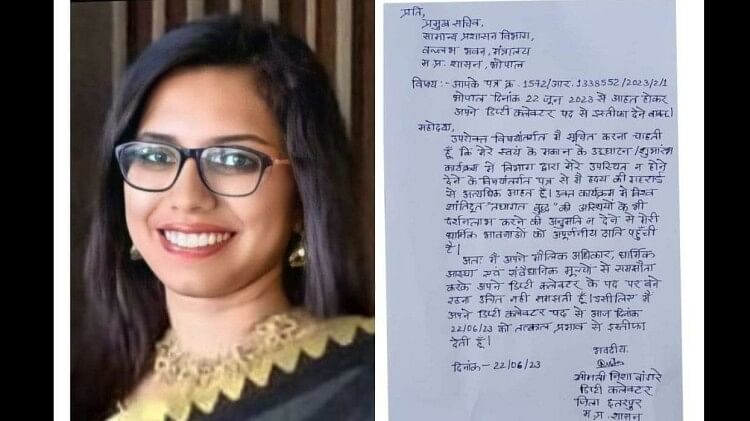 प्रति,
प्रमुख सचिव,
सामान्य प्रशासन विभाग,
वल्लभ भवन, मंत्रालय
म.प्र. शासन, भोपाल
विषय :- आपके पत्र क्र. 1572/आर. 1338552/2023/2/1
भोपाल दिनांक 22 जून 2023 से आहत होकर
अपने डिप्टी कलेक्टर पद से इस्तीफा देने बाबत।
महोदया,
उपरोक्त विषयांतर्गत मैं सूचित करना चाहती
हूँ कि मेरे स्वयं के मकान के उद्घाटन/शुभारंभ
कार्यक्रम में विभाग द्वारा मेरे उपस्थित न होने
देने के विषयांतर्गत पत्र से मैं हृदय की गहराई
से अत्यधिक आहत हूँ। उक्त कार्यक्रम में विश्व
शांतिदूत "तथागत बुद्ध" की अस्थियों के भी
दर्शनलाभ करने की अनुमति न देने से मेरी
धार्मिक भावनाओं को अपूर्णनीय हानि पहुँची
है।
अतः मैं अपने मौलिक अधिकार, धार्मिक
आस्था एवं संवैधानिक मूल्यों से समझौता
करके अपने डिप्टी कलेक्टर के पद पर बने
रहना उचित नहीं समझती हूँ। इसीलिए मैं
अपने डिप्टी कलेक्टर पद से आज दिनांक
22/06/23 को तत्काल प्रभाव से इस्तीफा
देती हूँ।
भवदीय
दिनांक - 22/06/23
श्रीमती निशा बांगरे
डिप्टी कलेक्टर
जिला छतरपुर
म.प्र. शासन